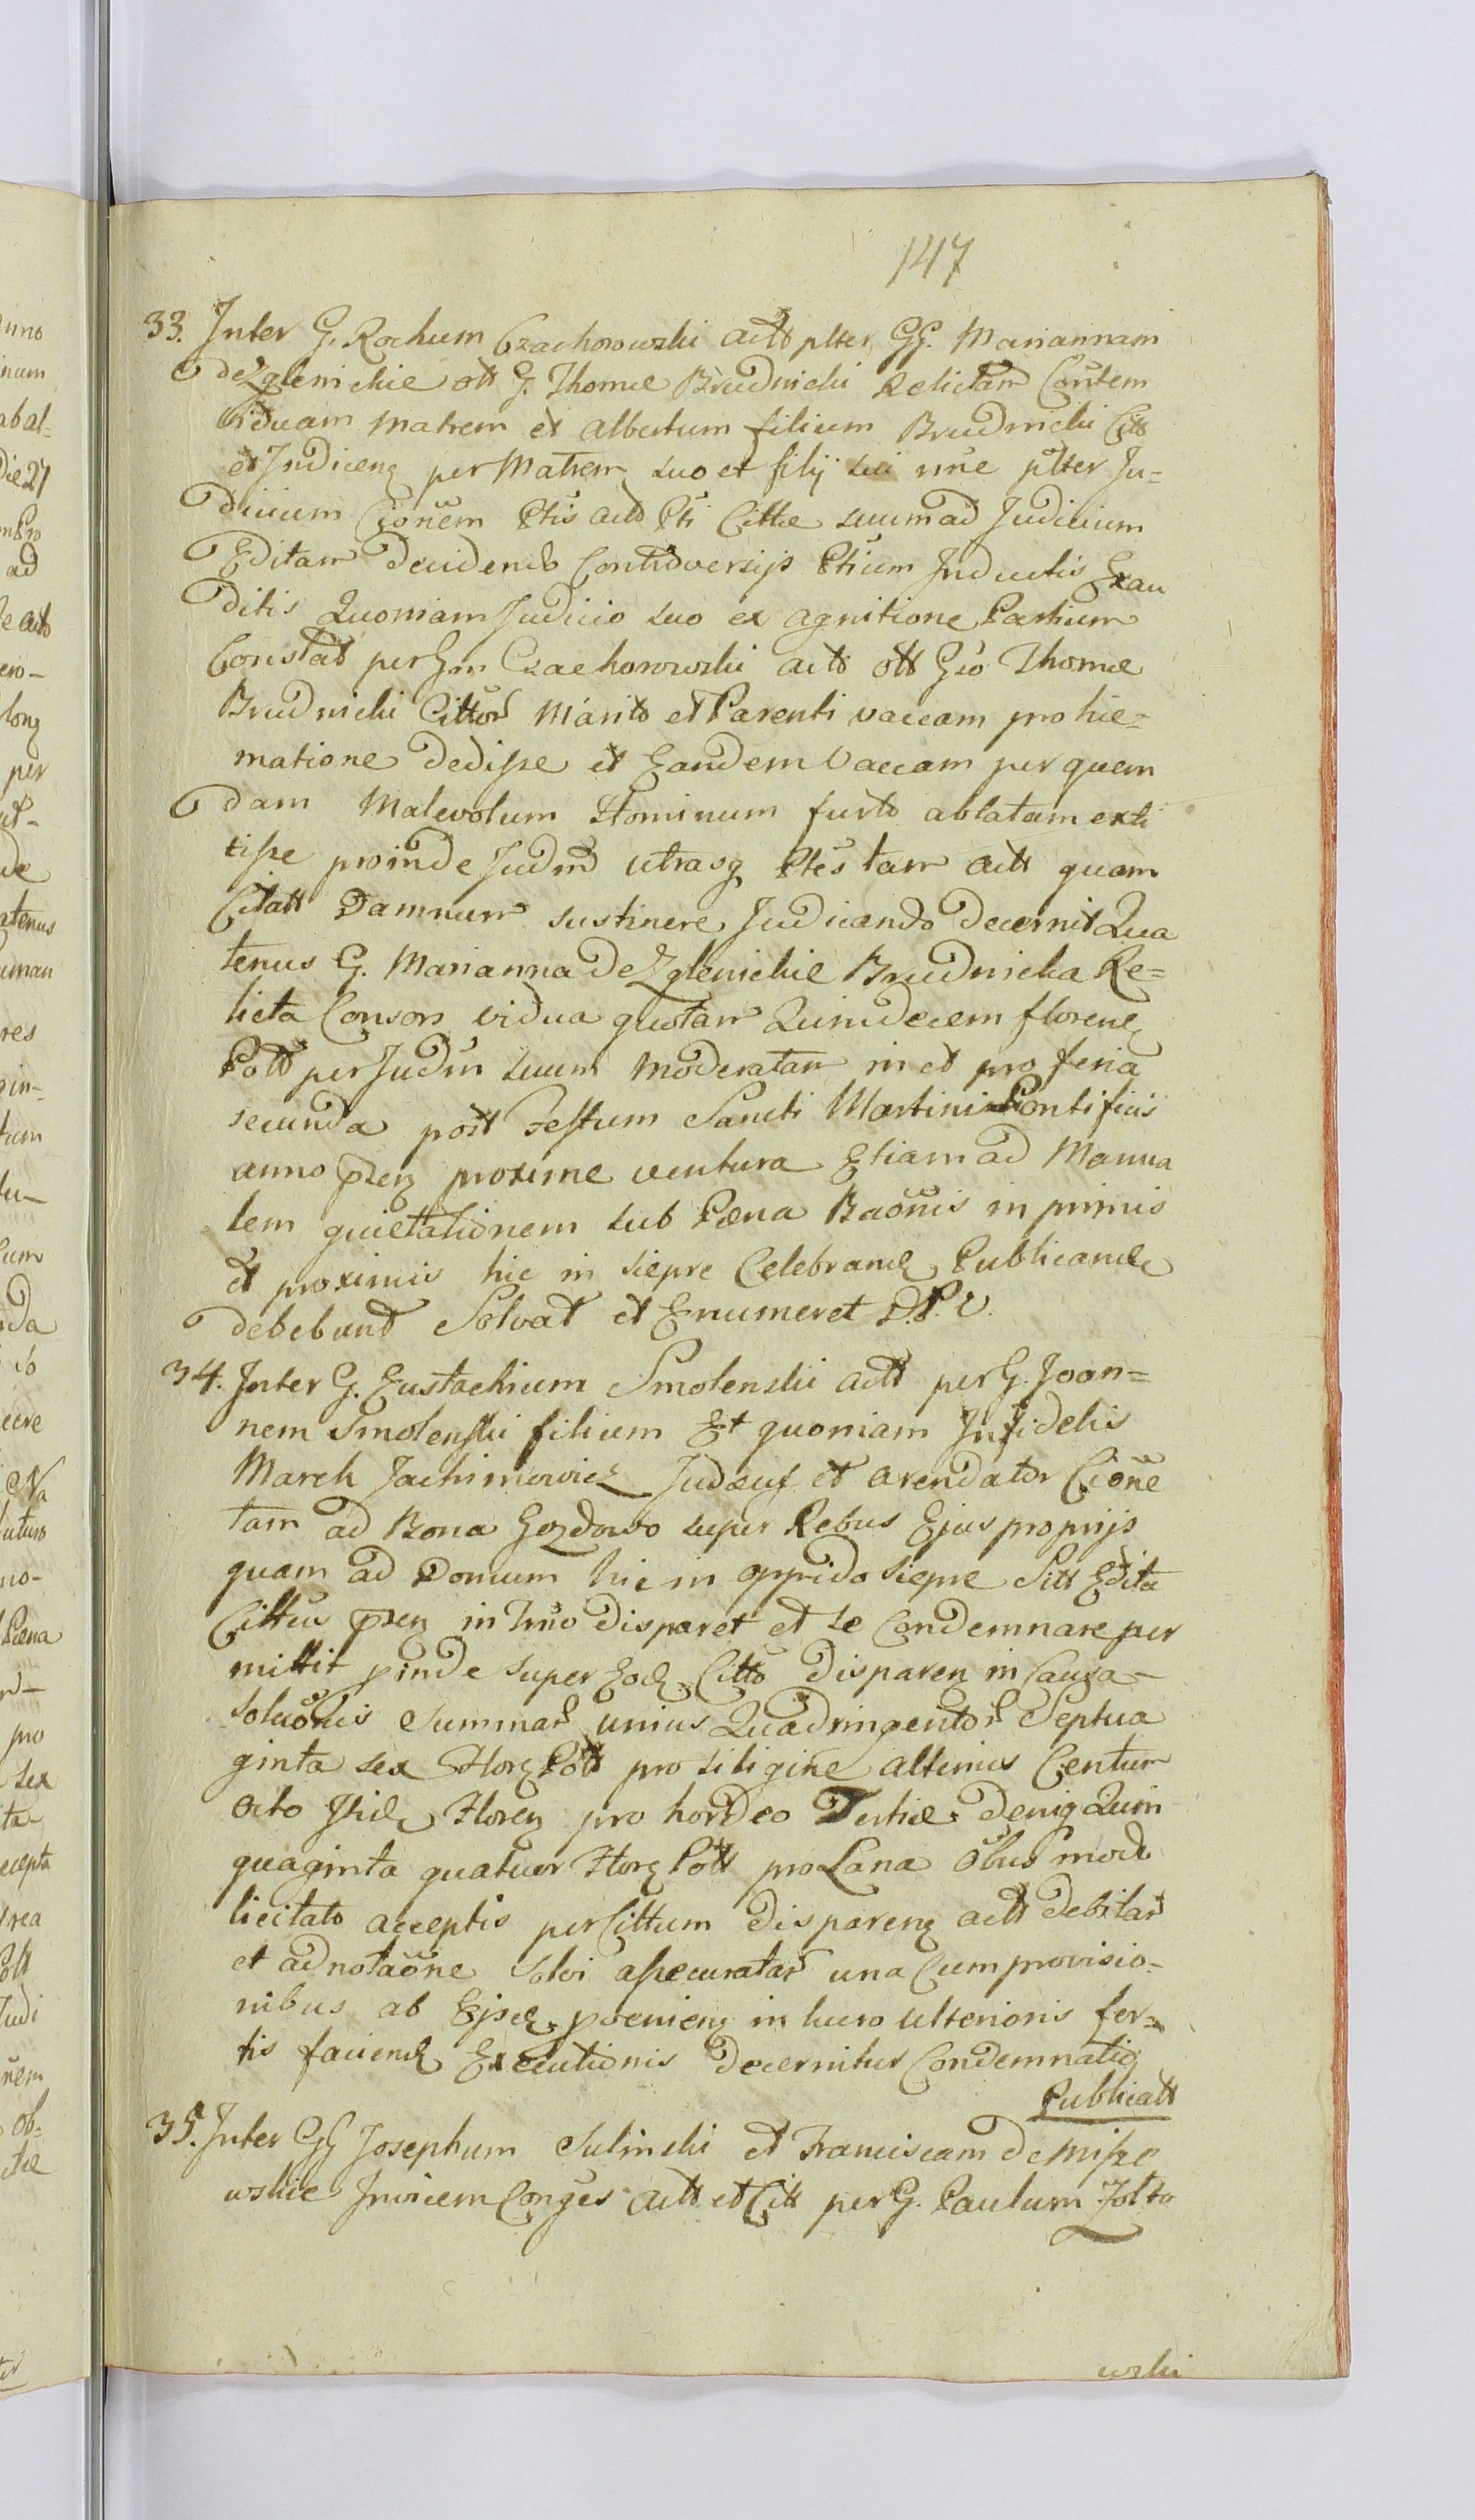 147
33. Inter G. Rochum Czachorowski actt plter GG. Mariannam
de Zglenickie ott G. Thomæ Brudnicki Relictam Coñtem
viduam Matrem et Albertum filium Brudnicki Citt
et Judicenz per Matrem suo et filij sui nñe pltter Ju=
dicium Cionem Ptis actt Pti Cittæ suum ad Judicium
Editam Decidendo Controversijs Ptium Inductis Exau
ditis Quoniam Judicio suo ex agnitione Partium
Constat per Gm Czachorowski actt ott Gso Thomæ
Brudnicki Cittor Marito et Parenti vaccam pro hie=
matione dedisse et Eandem Vaccam per quem
dam Malevolum Hominum furto ablatam exti
tisse proinde Judm utrasq Ptes tam actt quam
Citatt Damnum sustinere Judicando decernit Qua
tenus G. Marianna de Zglenickie Brudnicka Re=
licta Consors vidua quotam Quindecem florenz
Pott per Judm suum moderatam in et pro feria
secunda post Festum Sancti Martini Pontificis
anno przn proxime ventura Etiam ad Manua
lem quietationem sub Pæna Baönis in primis
et proximis hic in Siepre Celebrand Publicande
debebunt Solvat et Enumeret P.P.V.
34. Inter G. Eustachium Smolenski actt per G. Joan=
nem Smolenski filium Et quoniam Infidelis
Marek Jachimowicz Judæus et arendator Cione
tam ad Bona Gozdowo super Rebus Ejus proprijs
quam ad Domum hic in oppido Siepre Sitt Edita
Cittus przn in Trno disparet et se Condemnare per
mittit pinde super Eod Citto disparen in Causa
Soluönis Summar unius Quadringentor Septua
ginta sex Florz Pott pro siligine alterius Centum
octo Ihid Floren pro hordeo Tertiæ deniq Quin
quaginta quatuor Florz Pott pro Lana Obus modo
licitato acceptis per Cittum disparenz actt debitar
et adnotaöne Solvi assecuratar una Cum provisio=
nibus ab Ejsd proenienz in lucro ulterioris for=
tis faciend Executionis decernitur Condemnatio
Publicatt
35. Inter GG Josephum Sulinski et Franciscam de Misze
wskie Invicem Conges actt et Citt per G. Paulum Zolto
wski